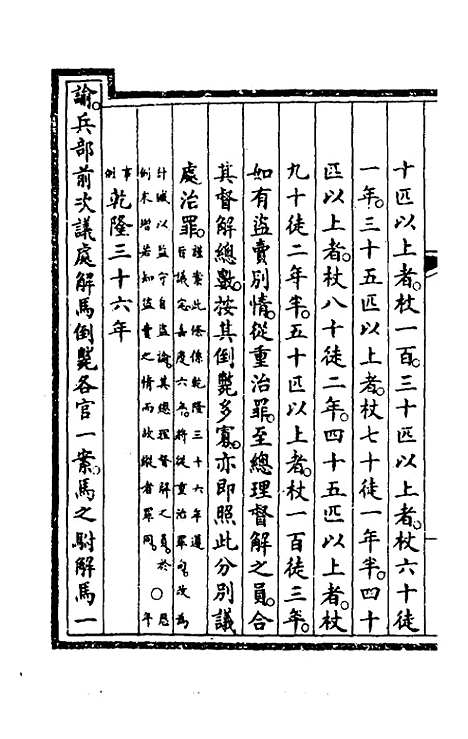 十匹以上者。杖一百。三十匹以上者。杖六十徒
一年。三十五匹以上者。杖七十徒一年半。四十
匹以上者。杖八十徒二年。四十五匹以上者。杖
九十徒二年半。五十匹以上者。杖一百徒三年。
如有盜賣別情。從重治罪。至總理督解之員。合
其督解總數。按其倒斃多寡。亦即照此分別議
處治罪。謹案此條係乾隆三十六年遵
旨議定嘉慶六年。將從重治罪句。改為
計贓以監守自盜論。其總理督解之員。於
例未增若知盜賣之情而故縱者罪同。○恩
年
事例乾隆三十六年
諭。兵部前次議處解馬倒斃各官一案。馬之駙解馬一